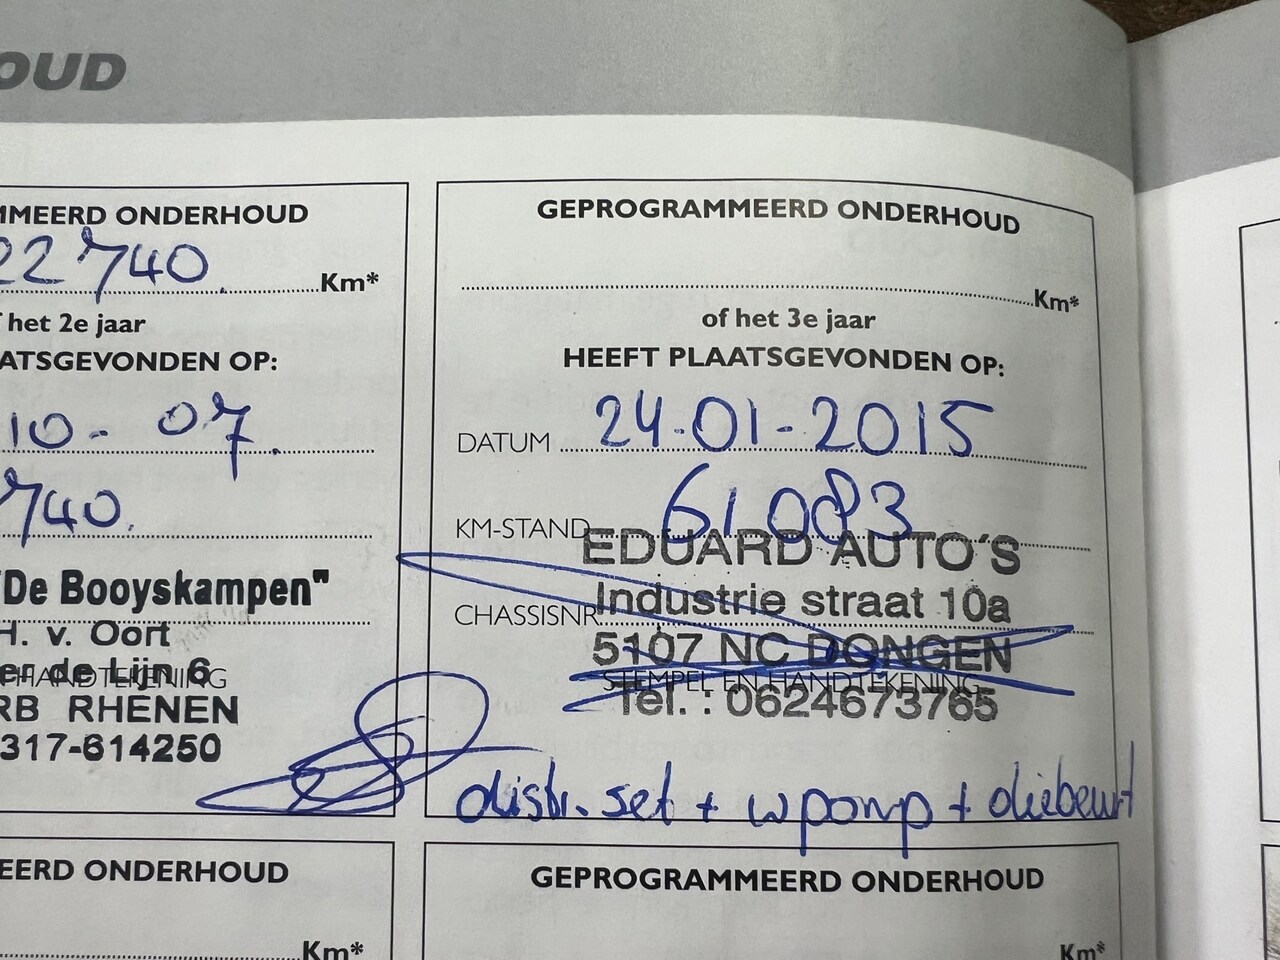 OUD
MMEERD ONDERHOUD
22740. Km*
het 2e jaar
AATSGEVONDEN OP:
10 - 07.
740.
"De Booyskampen"
H. v. Oort
er de Lijn 6
HANDTEKENING
RB RHENEN
317-614250
GEPROGRAMMEERD ONDERHOUD
Km*
of het 3e jaar
HEEFT PLAATSGEVONDEN OP:
DATUM 24-01-2015
KM-STAND 61083
EDUARD AUTO'S
CHASSISNR. Industrie straat 10a
5107 NC DONGEN
STEMPEL EN HANDTEKENING
Tel. : 0624673765
distr. set + w pomp + oliebeurt
EERD ONDERHOUD
Km*
GEPROGRAMMEERD ONDERHOUD
Km*